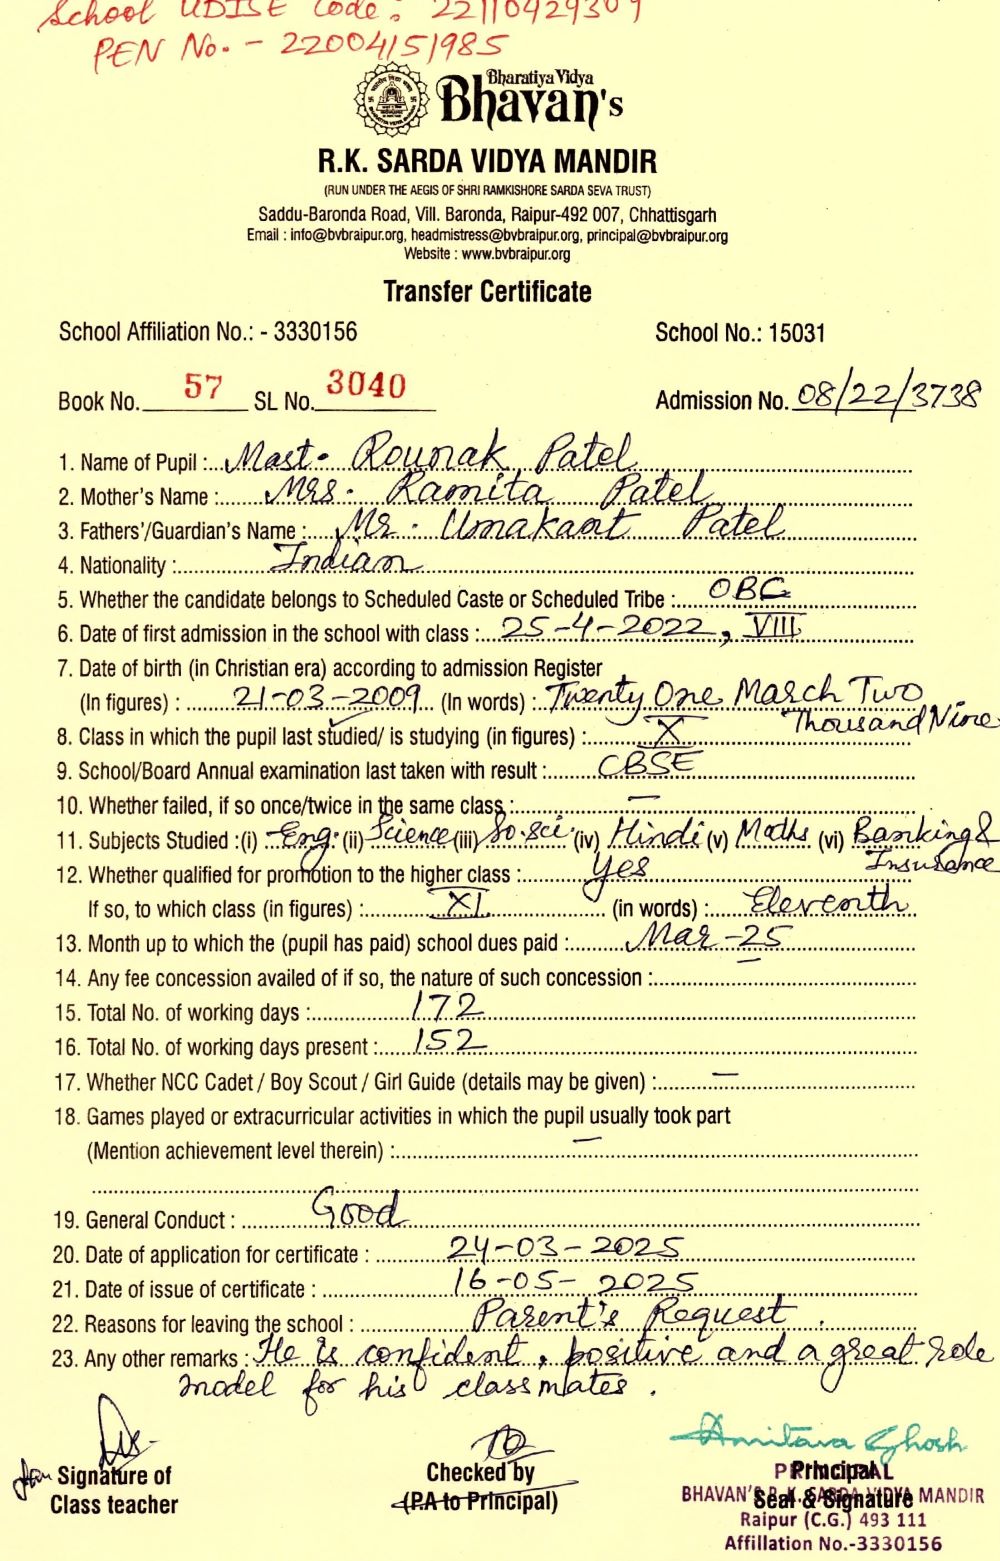 School UDISE Code: 22110429309
PEN No. - 22004151985
Bharatiya Vidya
Bhavan's
R.K. SARDA VIDYA MANDIR
(RUN UNDER THE AEGIS OF SHRI RAMKISHORE SARDA SEVA TRUST)
Saddu-Baronda Road, Vill. Baronda, Raipur-492 007, Chhattisgarh
Email : info@bvbraipur.org, headmistress@bvbraipur.org, principal@bvbraipur.org
Website : www.bvbraipur.org
Transfer Certificate
School Affiliation No.: - 3330156 School No.: 15031
Book No. 57 SL No. 3040 Admission No. 08/22/3738
1. Name of Pupil : Mast. Rounak Patel
2. Mother's Name : Mrs. Ramita Patel
3. Fathers'/Guardian's Name : Mr. Umakant Patel
4. Nationality : Indian
5. Whether the candidate belongs to Scheduled Caste or Scheduled Tribe : OBC
6. Date of first admission in the school with class : 25-4-2022, VIII
7. Date of birth (in Christian era) according to admission Register
(In figures) : 21-03-2009 (In words) : Twenty One March Two
Thousand Nine
8. Class in which the pupil last studied/ is studying (in figures) : X
9. School/Board Annual examination last taken with result : CBSE
10. Whether failed, if so once/twice in the same class : —
11. Subjects Studied :(i) Eng. (ii) Science (iii) So.sci. (iv) Hindi (v) Maths (vi) Banking &
Insurance
12. Whether qualified for promotion to the higher class : Yes
If so, to which class (in figures) : XI (in words) : Eleventh
13. Month up to which the (pupil has paid) school dues paid : Mar-25
14. Any fee concession availed of if so, the nature of such concession : —
15. Total No. of working days : 172
16. Total No. of working days present : 152
17. Whether NCC Cadet / Boy Scout / Girl Guide (details may be given) : —
18. Games played or extracurricular activities in which the pupil usually took part
(Mention achievement level therein) : —
19. General Conduct : Good
20. Date of application for certificate : 24-03-2025
21. Date of issue of certificate : 16-05-2025
22. Reasons for leaving the school : Parent's Request.
23. Any other remarks : He is confident, positive and a great role
model for his classmates.
Amitava Ghosh
Signature of Checked by Principal
Class teacher (P.A to Principal) Seal & Signature
PRINCIPAL
BHAVAN'S R.K. SARDA VIDYA MANDIR
Raipur (C.G.) 493 111
Affillation No.-3330156